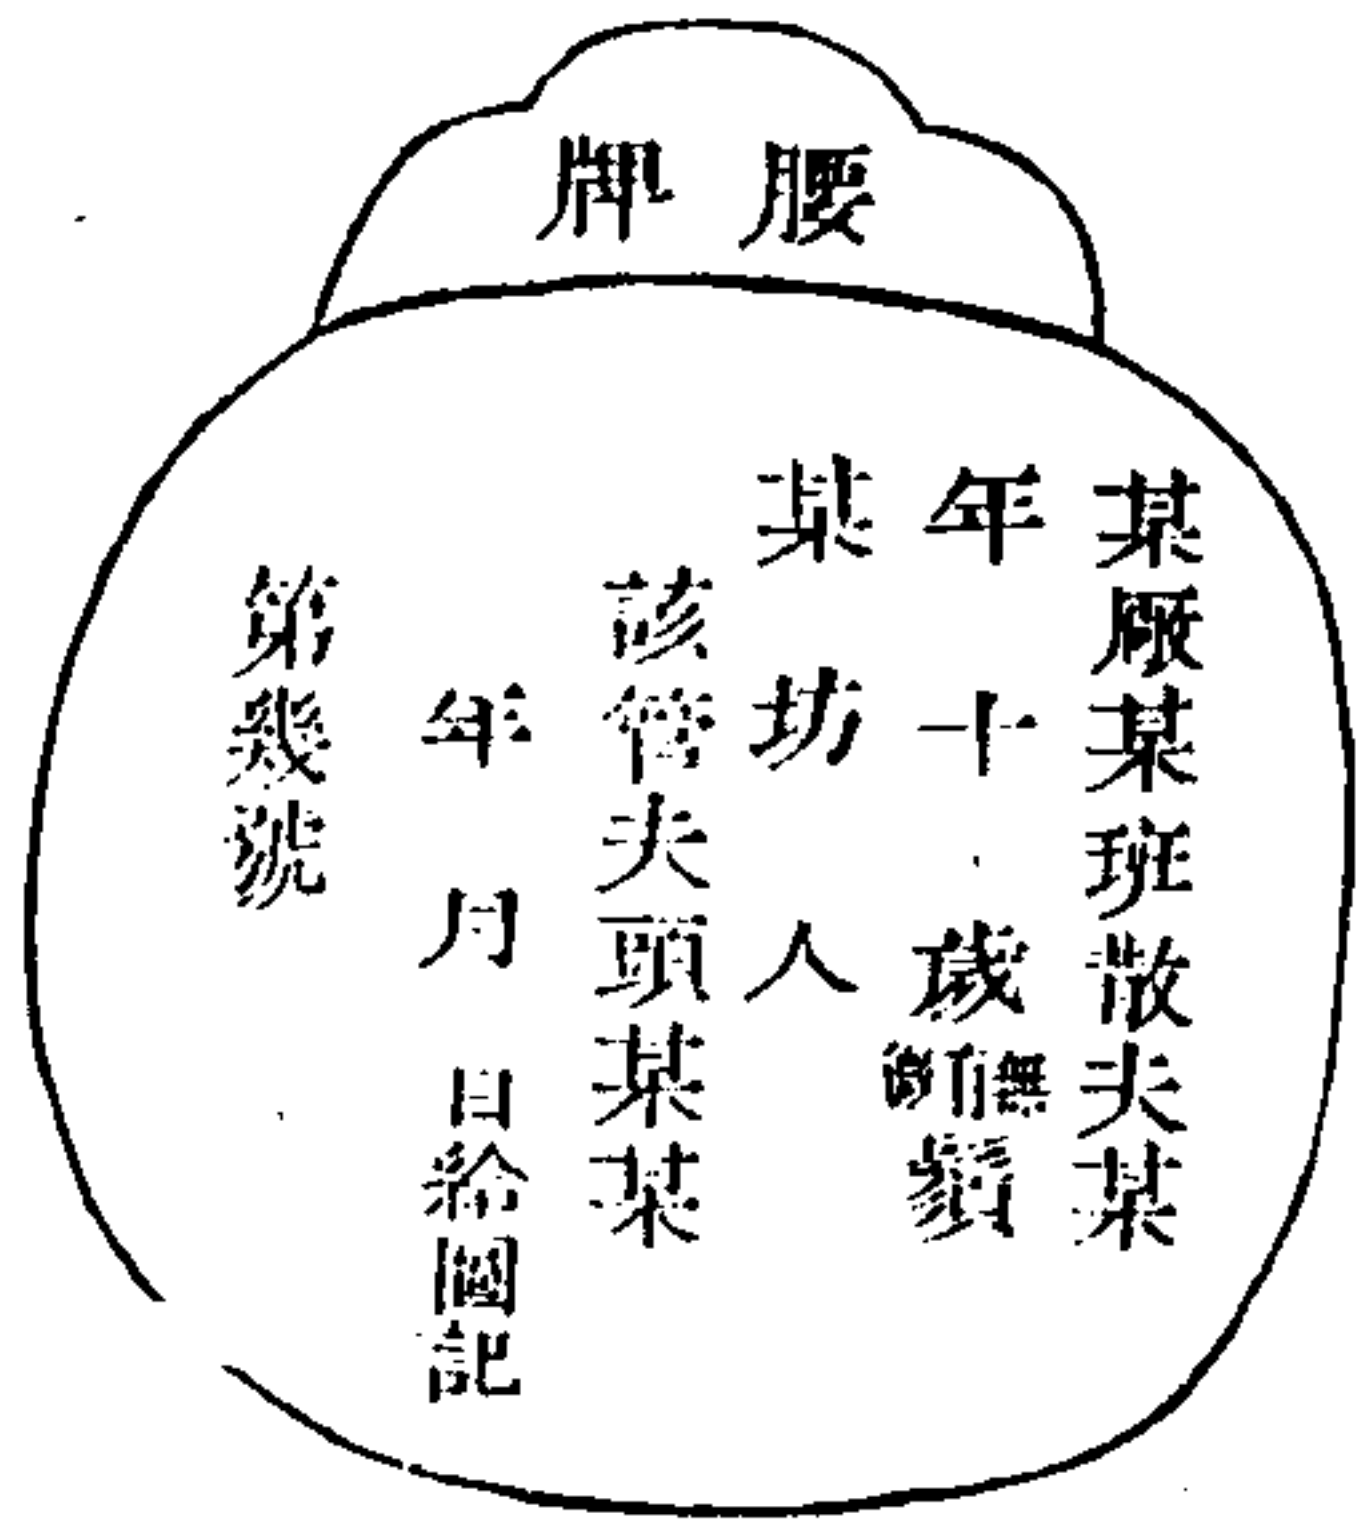 腰牌
某厰某班散夫某
年十歲無有微鬚
某坊人
該管夫頭某某
年月日給圖記
第幾號